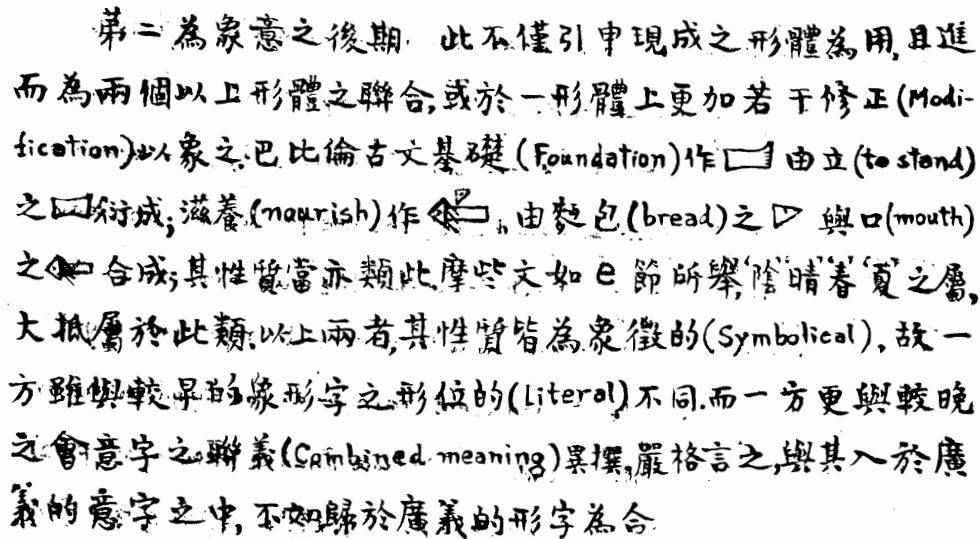 第二為象意之後期. 此不僅引申現成之形體為用,且進
而為兩個以上形體之聯合,或於一形體上更加若干修正(Modi-
fication)以象之.巴比倫古文基礎(Foundation)作 由立(to stand)
之 衍成;滋養(nourish)作 ,由麪包(bread)之 與口(mouth)
之 合成;其性質當亦類此.摩些文如e節所舉,"陰""晴""春""夏"之屬,
大抵屬於此類.以上兩者,其性質皆為象徵的(Symbolical),故一
方雖與較早的象形字之形位的(literal)不同.而一方更與較晚
之會意字之聯義(Combined meaning)異撰,嚴格言之,與其入於廣
義的意字之中,不如歸於廣義的形字為合